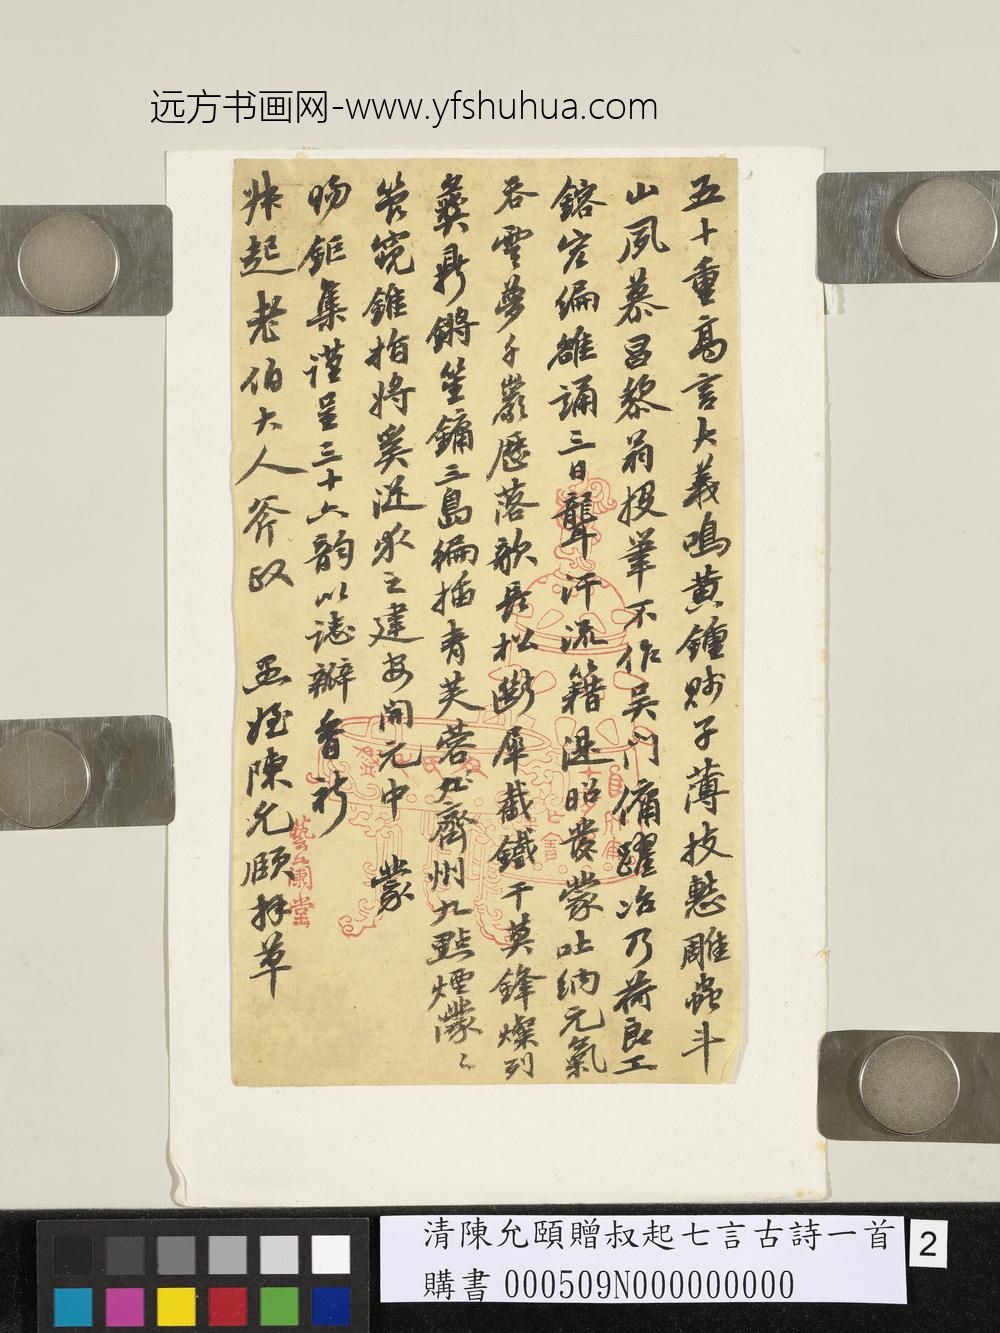 远方书画网-www.yfshuhua.com
五十重高言大義鳴黃鐘眇子薄技慙雕蟲斗
山夙慕昌黎翁投筆不作吳門傭躍冶乃荷良工
鎔宏編雒誦三日聾汗流籍湜昭發蒙吐納元氣
吞雲夢手巖歷落歌長松斷犀截鐵干莫鋒燦列
彝鼎鏘笙鏞三島編插青芙蓉思齊州九點煙濛〻
管窺錐指將奚從求之建安開元中 蒙
賜鉅集謹呈三十六韻以誌瓣香祈
叔起老伯大人斧政 愚姪陳允頤拜草
藝蘭堂
清陳允頤贈叔起七言古詩一首
購書 000509N000000000
2